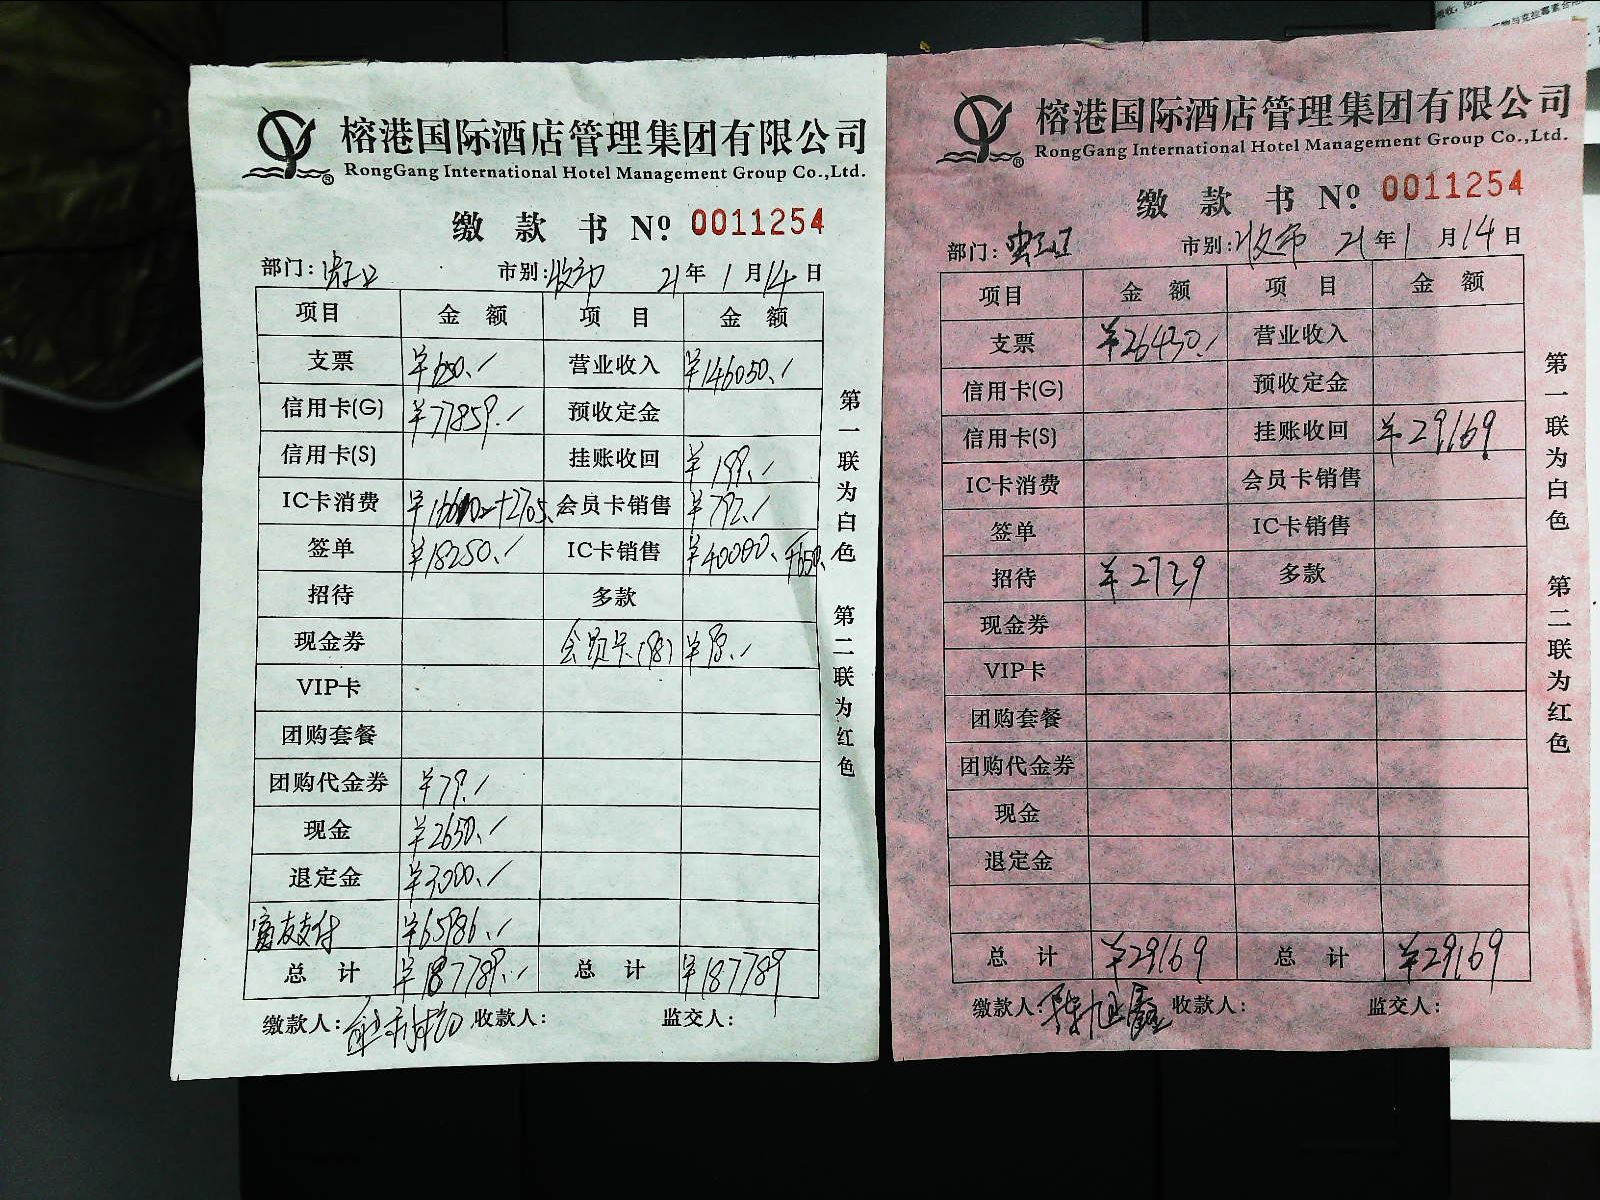 榕港国际酒店管理集团有限公司
RongGang International Hotel Management Group Co.,Ltd.
缴 款 书 Nº 0011254
部门: 市别:收市 21年 1月14日
项目 金 额 项 目 金 额
支票 ¥650./ 营业收入 ¥146050./
信用卡(G) ¥77859./ 预收定金
信用卡(S) 挂账收回 ¥199./
IC卡消费 +2705. 会员卡销售 ¥792./
签单 ¥18250./ IC卡销售 ¥40000. +650.
招待 多款
现金券 会员卡(98) ¥98./
VIP卡
团购套餐
团购代金券 ¥79./
现金 ¥2650./
退定金 ¥3000./
富友支付 ¥65986./
总 计 ¥187789./ 总 计 ¥187789
缴款人: 收款人: 监交人:
第一联为白色 第二联为红色
榕港国际酒店管理集团有限公司
RongGang International Hotel Management Group Co.,Ltd.
缴 款 书 Nº 0011254
部门: 市别:收市 21年 1月14日
项目 金 额 项 目 金 额
支票 ¥26430./ 营业收入
信用卡(G) 预收定金
信用卡(S) 挂账收回 ¥29169
IC卡消费 会员卡销售
签单 IC卡销售
招待 ¥2739 多款
现金券
VIP卡
团购套餐
团购代金券
现金
退定金
总 计 ¥29169 总 计 ¥29169
缴款人: 收款人: 监交人:
第一联为白色 第二联为红色